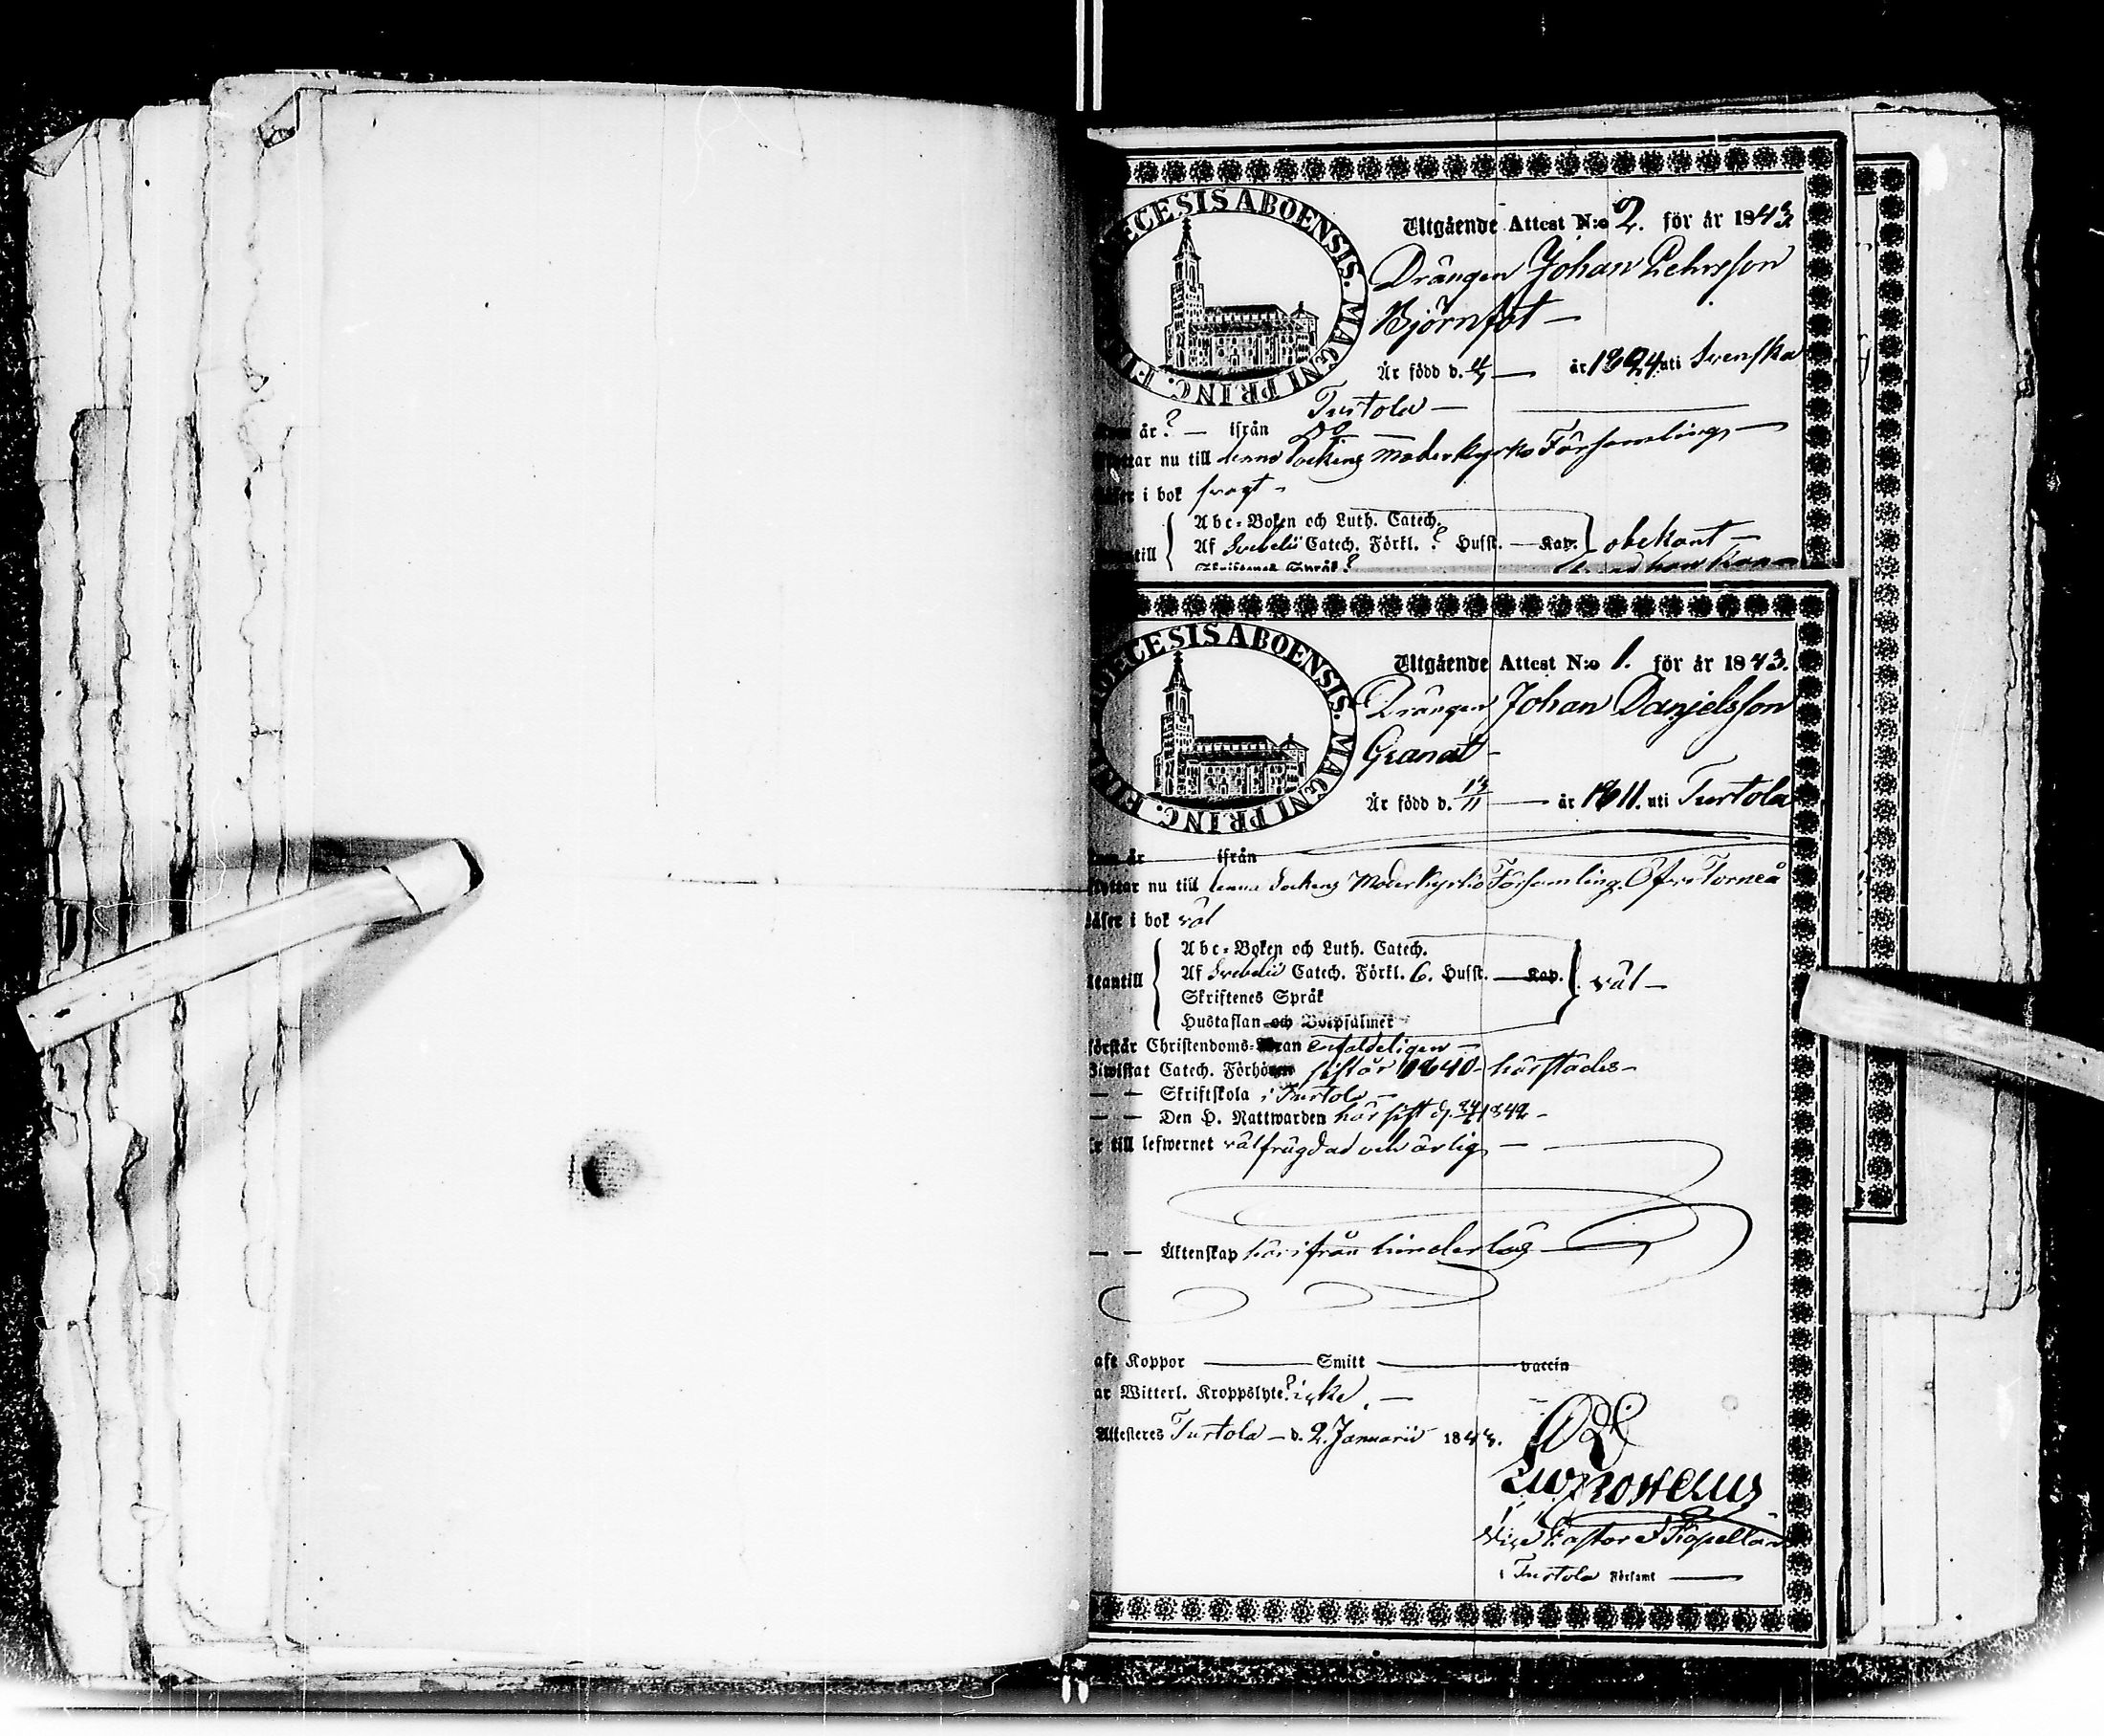 DIOECESIS ABOENSIS. MAGNI PRINC. FINL.
Utgående Attest N:o 2. för år 1843.
Drängen Johan Pehrsson
Björnfot —
Är född d. — år 1824 uti Svenska
Turtola —
år ? — ifrån Do —
Flyttar nu till denna Sockens Moderkyrko Församling —
Läser i bok svagt —
Abc-Boken och Luth. Catech.
Utantill Af Svebelii Catech. Förkl. ? Hufst. — Kap. obekant —
Skriftenes Språk ?
DIOECESIS ABOENSIS. MAGNI PRINC. FINL.
Utgående Attest N:o 1. för år 1843.
Drängen Johan Danjelsson
Granat —
Är född d. 13/11 — år 1811. uti Turtola
Kom år — ifrån
Flyttar nu till denna Sockens Moderkyrko Församling Öfver Torneå
Läser i bok väl
Abc-Boken och Luth. Catech.
Utantill Af Svebelii Catech. Förkl. 6. Hufst. — Kap. väl —
Skriftenes Språk
Hustaflan och Botpsalmer
Förstår Christendoms-Läran enfaldeligen —
Biwistat Catech. Förhören sistår 1840 härstädes —
— — Skriftskola i Turtola —
— — Den H. Nattwarden här sist d. 1842 —
Är till lefwernet välfrägdad och ärlig —
— — Äktenskap härifrån hinderlös —
Haft Koppor — Smitt — vaccin
Har Witterl. Kroppslyte? icke. —
Attesteres Turtola — d. 2. Januarii 1843.
Vice Pastor & Kapellan
i Turtola Förſaml —